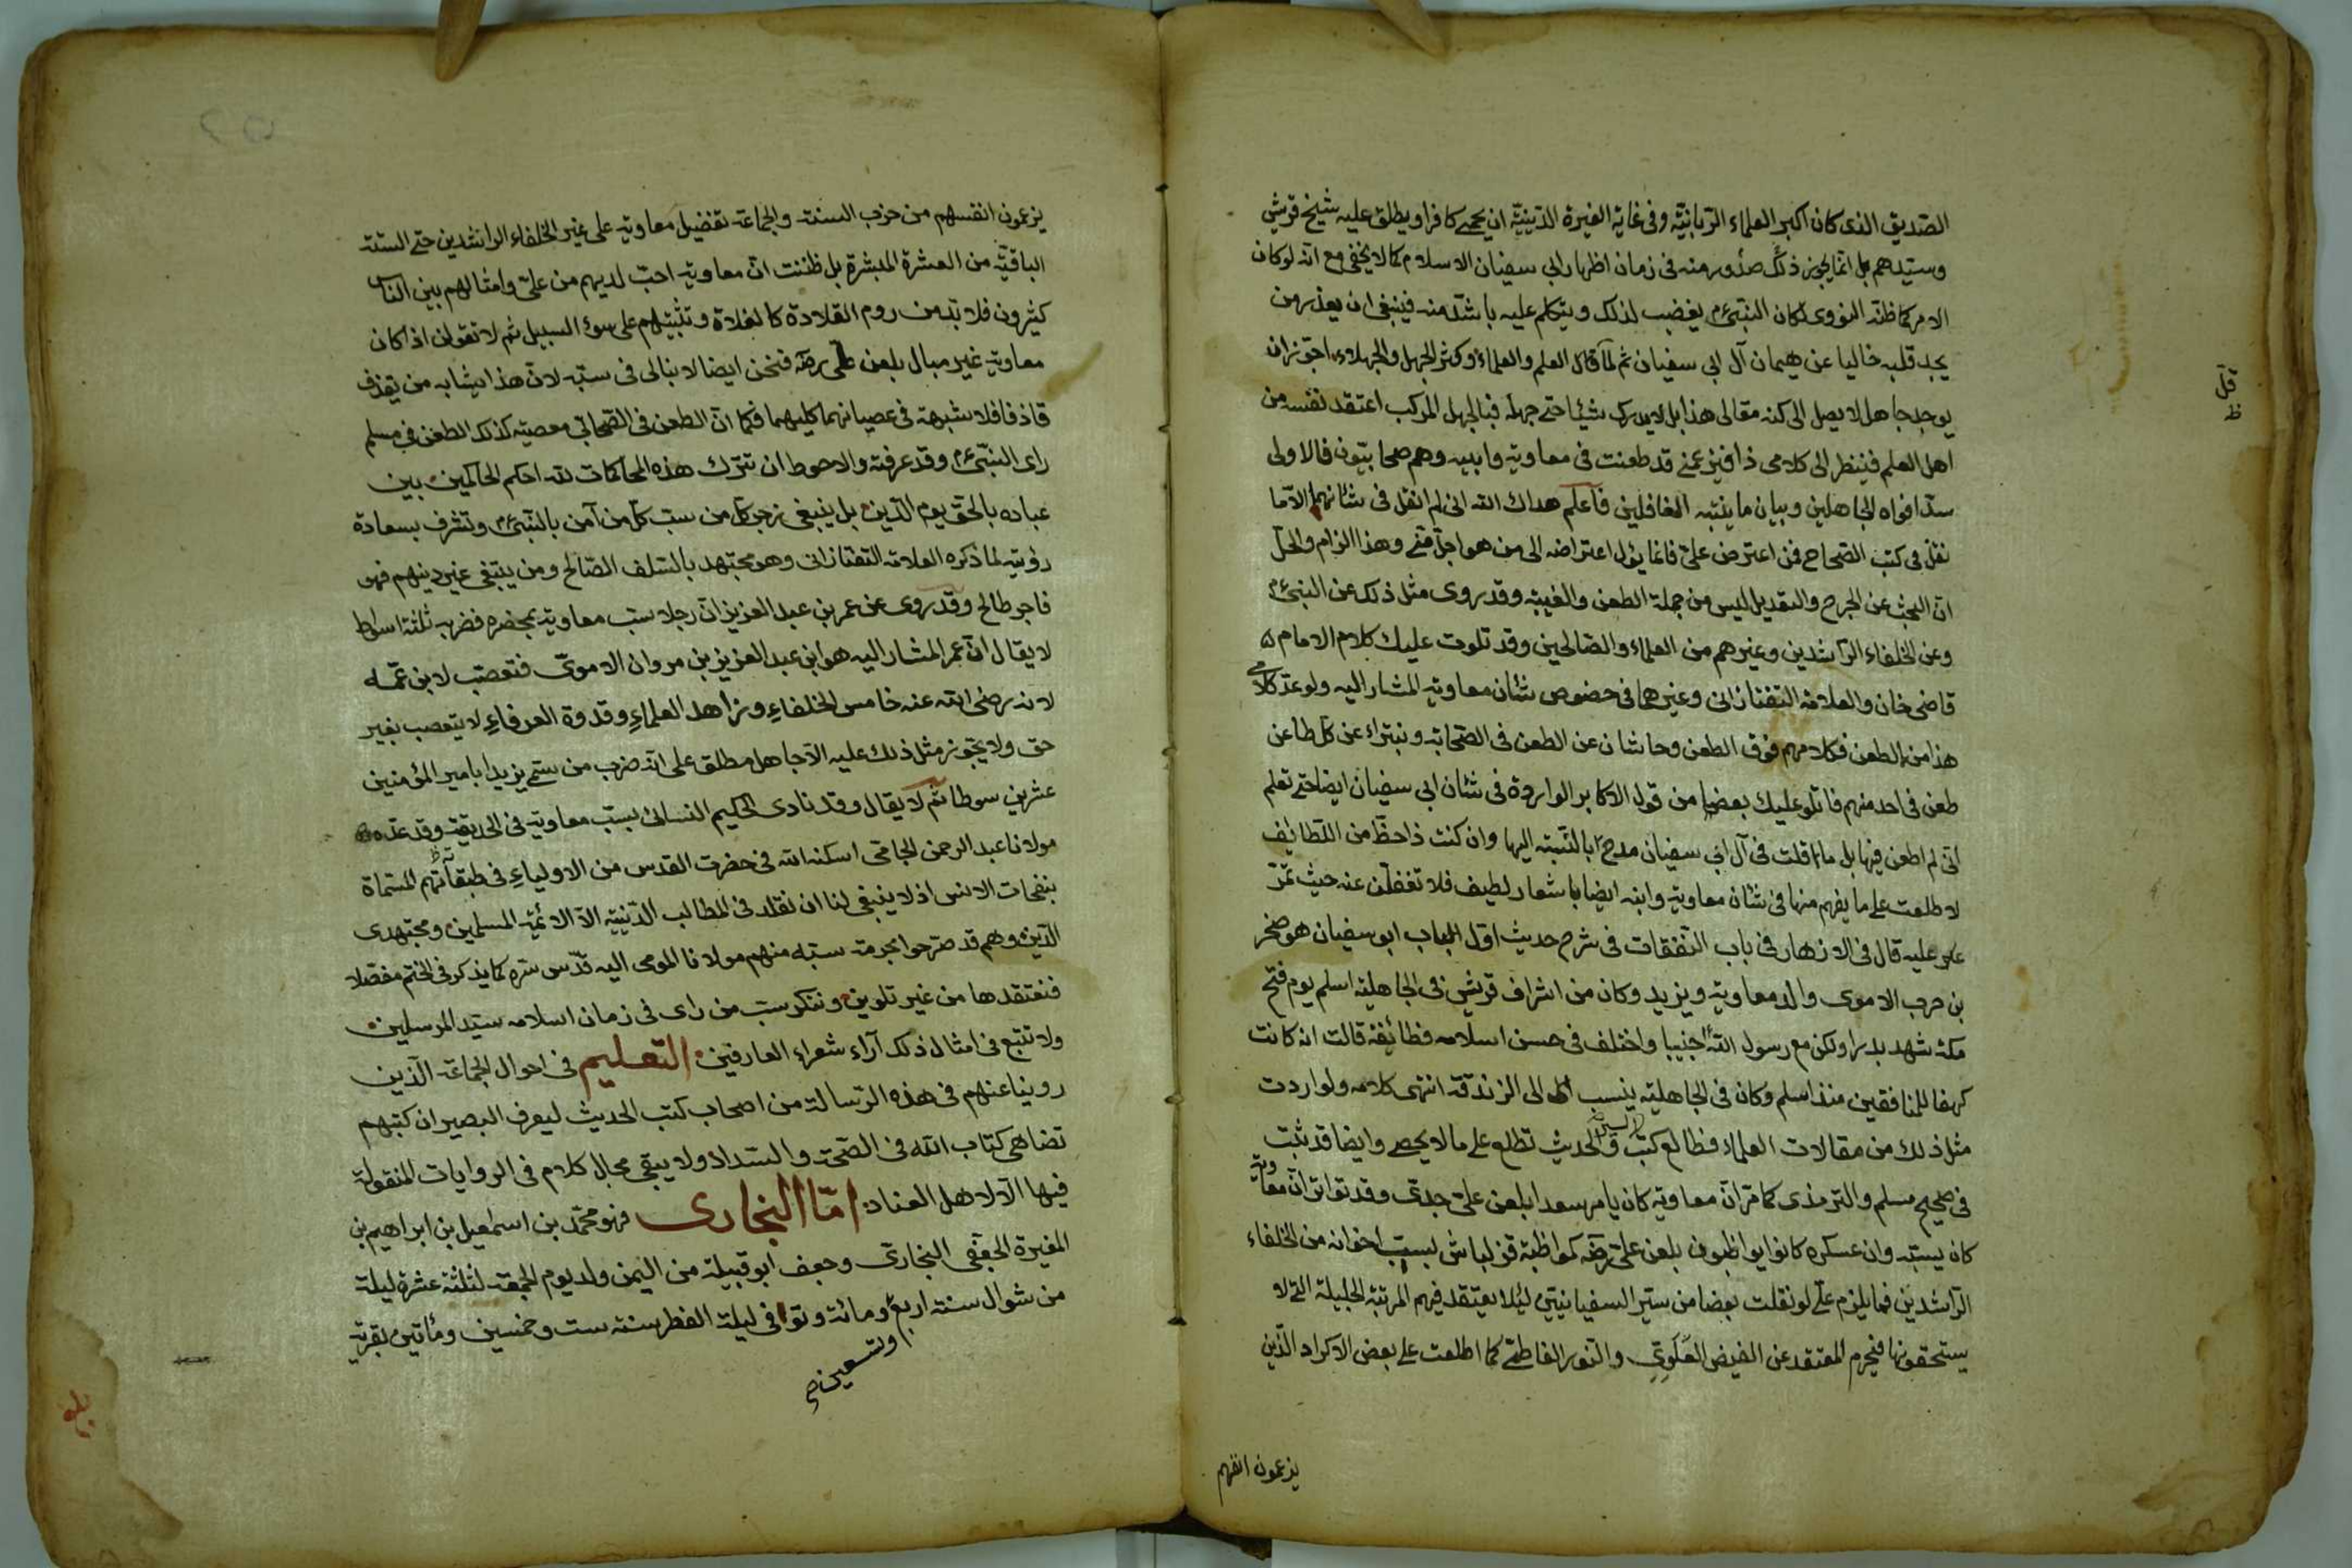 الصّديق الذى كان اكبر العلماء الرّبانيّة وفى غاية الغيرة الدّينيّة ان يحمى كافرا ويطلق عليه شيخ قريش
وسيّدهم بل انما يجوز ذلك صدوره منه فى زمان اظهار ابى سفيان الاسلام كما لا يخفى مع انه لو كان
الامر كما ظنّه النووى لكان النبىّ ءم يغضب لذلك ويتكلم عليه باشدّ منه فينبغى ان يعذر من
يجد قلبه خاليا عن هيمان آل ابى سفيان ثم لمّا قلّ العلم والعلماء وكثر الجهل والجهلاء اجوّز ان
يوجد جاهل لا يصل الى كنه مقالى هذا بل لا يدرك شيئا حتى جهله فبالجهل المركب اعتقد نفسه من
اهل العلم فينظر الى كلامى ذا فيزعمنى قد طعنت فى معاوية وابيه وهم صحابيّون فالاولى
سدّ افواه الجاهلين وبيان ما ينبّه الغافلين فاعلم هداك الله انى لم انقل فى شانهما الّا ما
نقل فى كتب الصّحاح فمن اعترض علىّ فانما يؤل اعتراضه الى من هو اجلّ منّى وهذا الزام والحلّ
انّ البحث عن الجرح والتعديل ليس من جملة الطعن والغيبة وقد روى مثل ذلك عن النبىّ ءم
وعن الخلفاء الرّاشدين وغيرهم من العلماء والصّالحين وقد تلوت عليك كلام الامام
قاضى خان والعلامة التفتازانى وغيرهما فى خصوص شان معاوية المشار اليه ولو عدّ كلامى
هذا من الطعن فكلامهم فوق الطعن وحاشان عن الطعن فى الصّحابة ونبتراء عن كلّ طاعن
طعن فى احد منهم فاتلو عليك بعضا من قول الاكابر الواردة فى شان ابى سفيان ايضا حتى تعلم
انّى لم اطعن فيها بل ما قلت فى آل ابى سفيان مدح بالنّسبة اليها وان كنت ذا حظّ من اللّطائف
لاطلعت على ما يفهم منها فى شان معاوية وابنه ايضا باشعار لطيف فلا تغفلن عنه حيث تمرّ
عليه قال فى الازهار فى باب النّفقات فى شرح حديث اوّل الباب ابو سفيان هو صخر
بن حرب الاموى والد معاوية ويزيد وكان من اشراف قريش فى الجاهلية اسلم يوم فتح
مكة شهد بدرا ولكن مع رسول الله اجنبيا واختلف فى حسن اسلامه فطائفة قالت انه كانت
كهفا للمنافقين منذ اسلم وكان فى الجاهلية ينسب الى الزندقة انتهى كلامه ولو اردت
مثل ذلك من مقالات العلماء فطالع كتب السير والحديث تطلع على ما لا يحصى وايضا قد ثبت
فى صحيح مسلم والترمذى كما مرّ انّ معاوية كان يامر سعدا بلعن علىّ جدّى وقد تواتر انّ معاوية
كان يسبّه وان عسكره كانوا يواظبون بلعن علىّ رضه كمواظبة قزلباش بسبّ اخوانه من الخلفاء
الرّاشدين فما يلزم علىّ لو نقلت بعضا من سير السفيانيّين ليئلا يعتقد فيهم المرتبة الجليلة التى لا
يستحقونها فيحرم المعتقد عن الفيض العَلَوِىّ والنور الفاطمى كما اطلعت على بعض الاكراد الذين
يزعمون انفسهم
قلّ
ظ
يزعمون انفسهم من حزب السنة والجماعة تفضيل معاوية على غير الخلفاء الراشدين حتى الستة
الباقية من العشرة المبشرة بل ظننت انّ معاوية احبّ لديهم من علىّ وامثالهم بين الناس
كثيرون فلا بدّ من روم القلادة كالغلاة وتثبيتهم على سوء السبيل ثم لا تقولن اذا كان
معاوية غير مبال بلعن على رضه فنحن ايضا لا نبالى فى سبّه لانّ هذا يشابه من يقذف
قاذفا فلا شبهة فى عصيانهما كليهما فكما انّ الطعن فى الصّحابى معصية كذلك الطعن فى مسلم
راى النبىّ ءم وقد عرفته والاحوط ان نترك هذه المحاكمات لله احكم الحاكمين بين
عباده بالحق يوم الدّين بل ينبغى زجر كل من سبّ كلّ من آمن بالنبىّ ءم وتشرف بسعادة
رؤيته لما ذكره العلامة التفتازانى وهو مجتهد بالسّلف الصّالح ومن يبتغى غير دينهم فهو
فاجر طالح وقد روى عن عمر بن عبد العزيز انّ رجلا سبّ معاوية بمحضره فضربه ثلثة اسواط
لا يقال انّ عمر المشار اليه هو ابن عبد العزيز بن مروان الاموىّ فتعصّب لابن عمّه
لانه رضى الله عنه خامس الخلفاء وزاهد العلماء وقدوة العرفاء لا يتعصب بغير
حق ولا يجوّز مثل ذلك عليه الّا جاهل مطلق على انّه ضرب من سمّى يزيدا بامير المؤمنين
عشرين سوطا ثم لا يقال وقد نادى الحكيم النسائى بسبّ معاوية فى الحديقة وقد عدّه
مولانا عبد الرحمن الجامى اسكنه الله فى حضرت القدس من الاولياء فى طبقاتهم المسمّاة
بنفحات الانس اذ لا ينبغى لنا ان نقلد فى المطالب الدّينيّة الّا الائمّة المسلمين ومجتهدى
الدّين وهم قد صرّحوا بحرمة سبّه منهم مولانا المومى اليه قدّس سرّه كما يذكر فى الختم مفصّلا
فنعتقدها من غير تلوين وننكر سبّ من راى فى زمان اسلامه سيّد المرسلين
ولا نتبع فى امثال ذلك آراء شعراء العارفين التعليم فى احوال الجماعة الّذين
روينا عنهم فى هذه الرّسالة من اصحاب كتب الحديث ليعرف البصير ان كتبهم
تضاهى كتاب الله فى الصّحّة والسّداد ولا يبقى مجال كلام فى الروايات المنقولة
فيها الّا لاهل العناد امّا البخارى فهو محمّد بن اسمعيل بن ابراهيم بن
المغيرة الجعفى البخارى وجعف ابو قبيلة من اليمن ولد يوم الجمعة لثلثة عشرة ليلة
من شوال سنة اربع ومائة وتوفى ليلة الفطر سنة ست وخمسين ومأتين بقرية
وتسعين